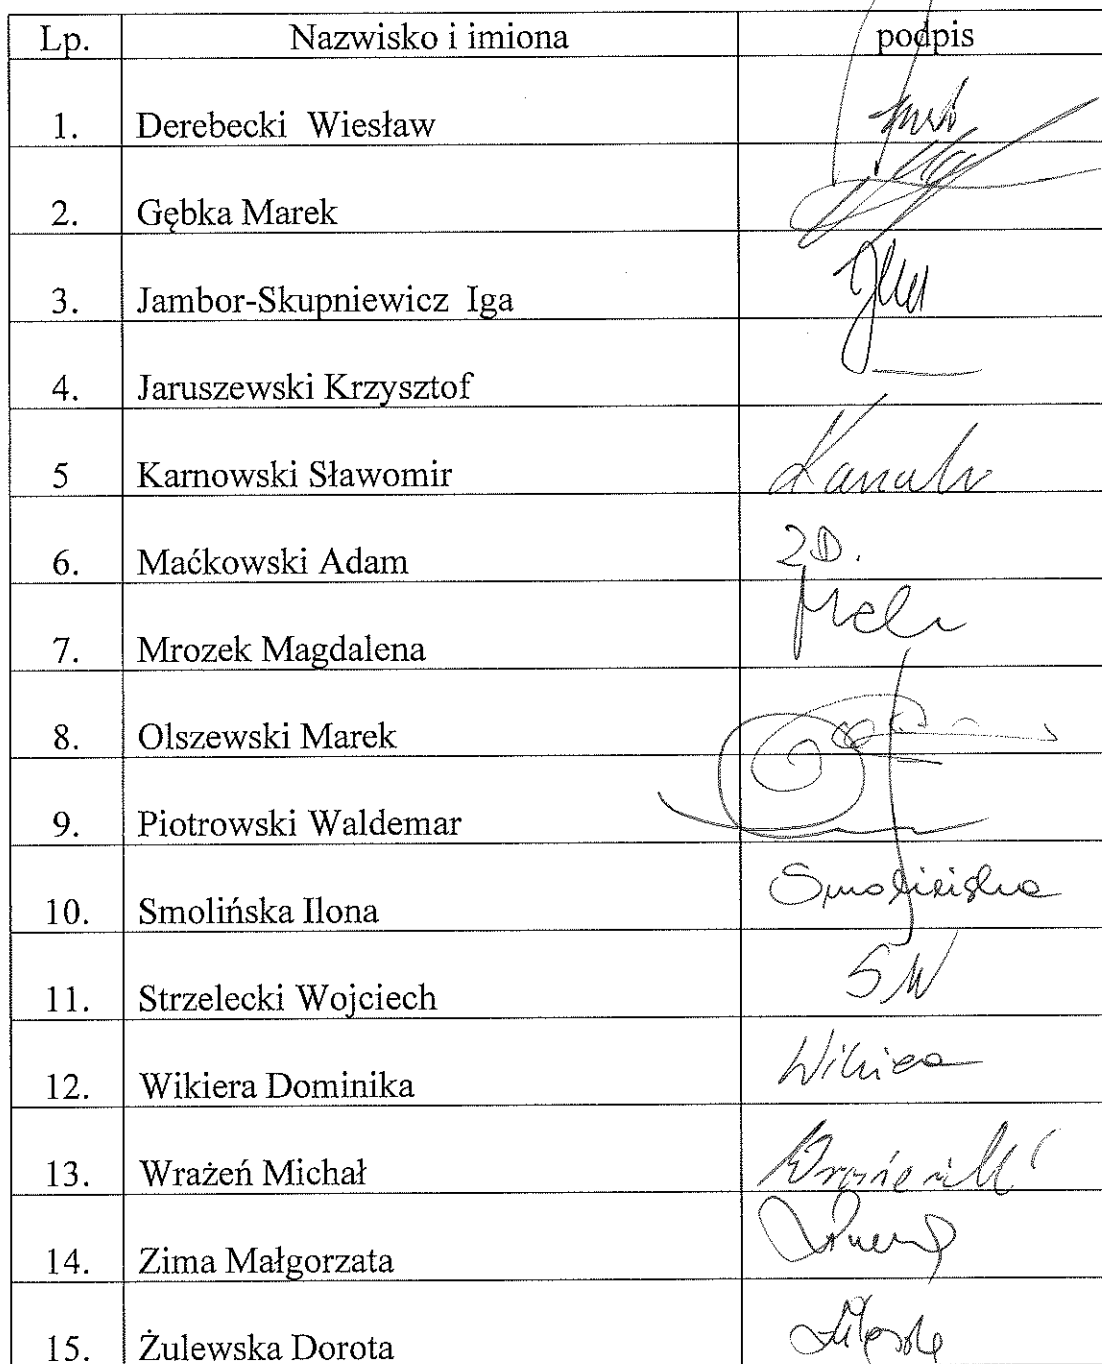 Lp. Nazwisko i imiona podpis
1. Derebecki Wiesław
2. Gębka Marek
3. Jambor-Skupniewicz Iga
4. Jaruszewski Krzysztof
5 Karnowski Sławomir
6. Maćkowski Adam
7. Mrozek Magdalena
8. Olszewski Marek
9. Piotrowski Waldemar
10. Smolińska Ilona Smolińska
11. Strzelecki Wojciech SW
12. Wikiera Dominika
13. Wrażeń Michał
14. Zima Małgorzata
15. Żulewska Dorota